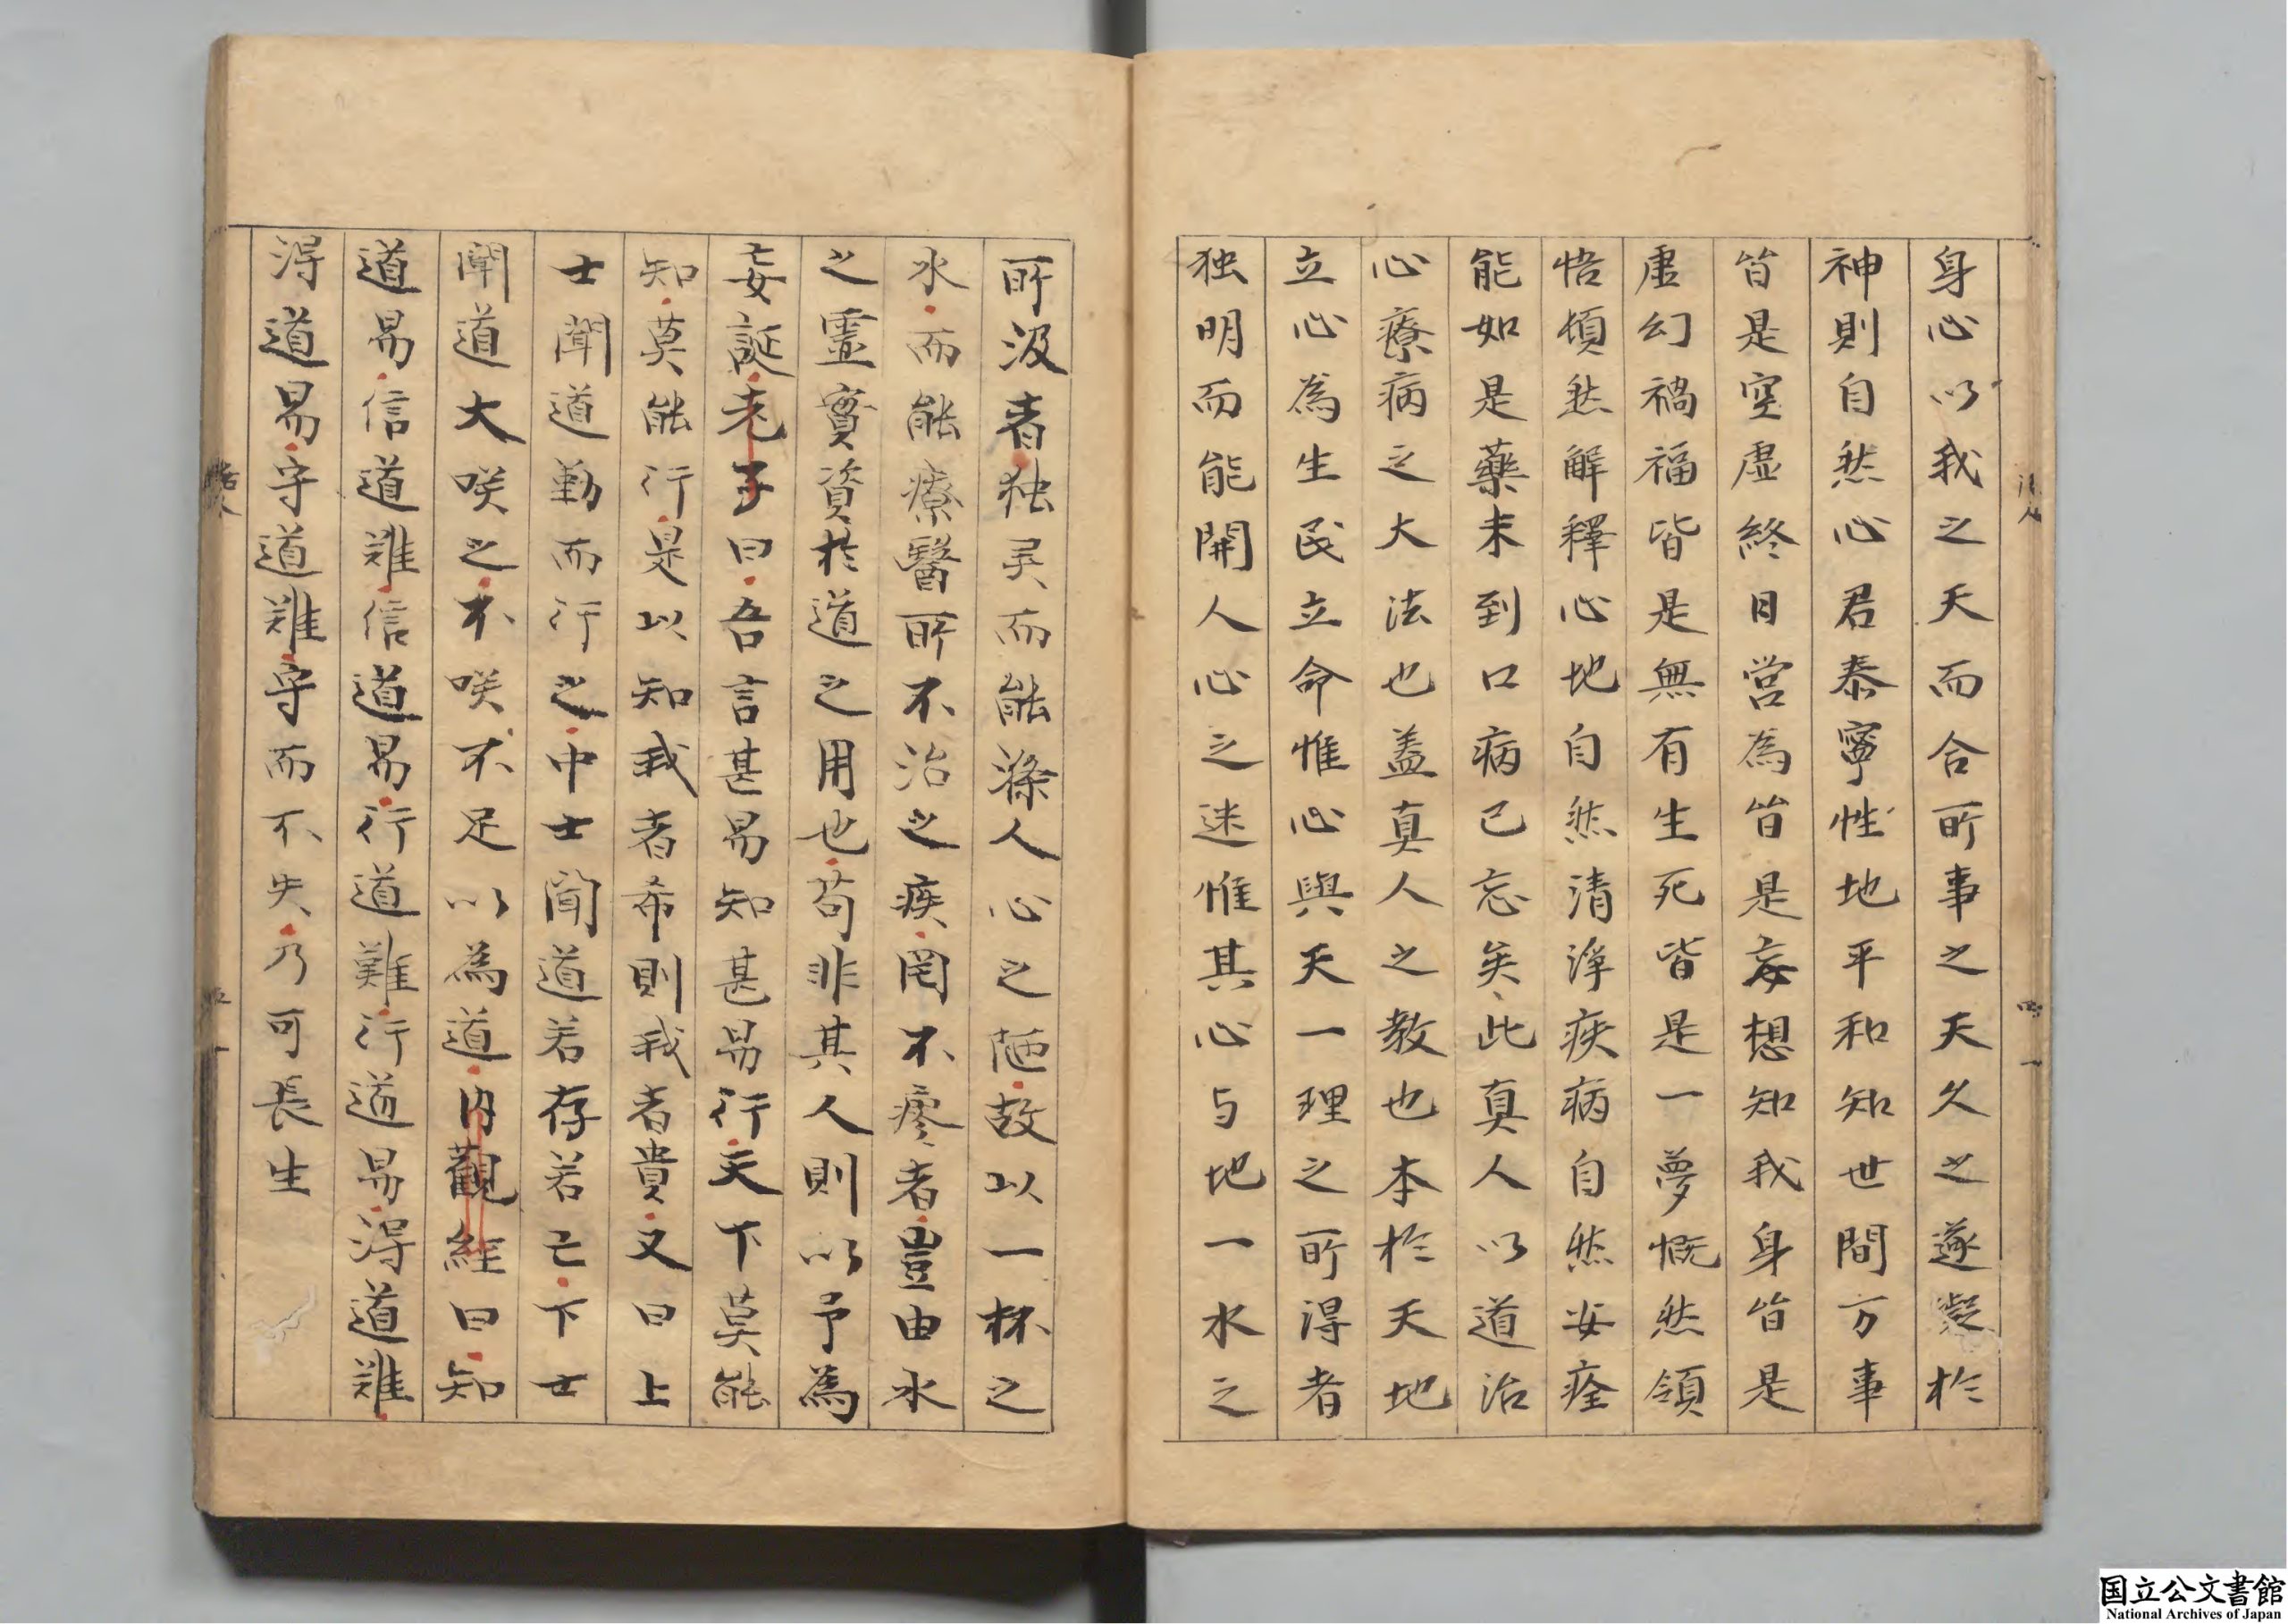 身心以我之天而合所事之天久之遂凝於
神則自然心君泰寧性地平和知世間万事
皆是空虛終日営為皆是妄想知我身皆是
虛幻禍福皆是無有生死皆是一夢慨然領
悟頓然解釋心地自然清淨疾病自然安痊
能如是藥未到口病已忘矣此真人以道治
心療病之大法也盖真人之教也本於天地
立心為生民立命惟心與天一理之所得者
独明而能開人心之迷惟其心与地一水之
所汲者独灵而能滌人心之陋故以一杯之
水而能療醫所不治之疾罔不瘳者豈由水
之靈實資於道之用也苟非其人則以予為
妄誕老子曰吾言甚易知甚易行天下莫能
知莫能行是以知我者希則我者貴又曰上
士聞道勤而行之中士聞道若存若亡下士
聞道大咲之不咲不足以為道内觀經曰知
道易信道難信道易行道難行道易得道難
得道易守道難守而不失乃可長生
四
五
国立公文書館
National Archives of Japan